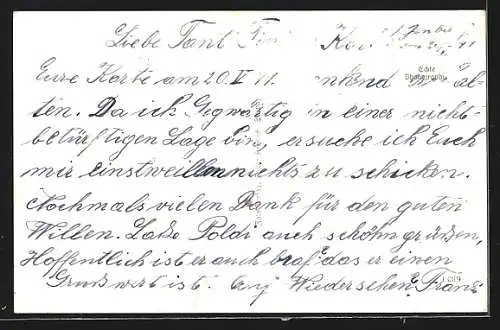 Liebe Tant
Eure Karte am 20.V 41. ankend er al-
ten. Da ich Gegwärtig in einer nicht-
betürftigen Lage bin, ersuche ich Euch
mir einstweillen nichts zu schicken.
Nochmals vielen Dank für den guten
Willen. Laße Poldi auch schöhn grüßen,
Hoffentlich ist er auch braf das er einen
Gruß wert ist. Auf Wiedersehen Franz
Echte
Photographie